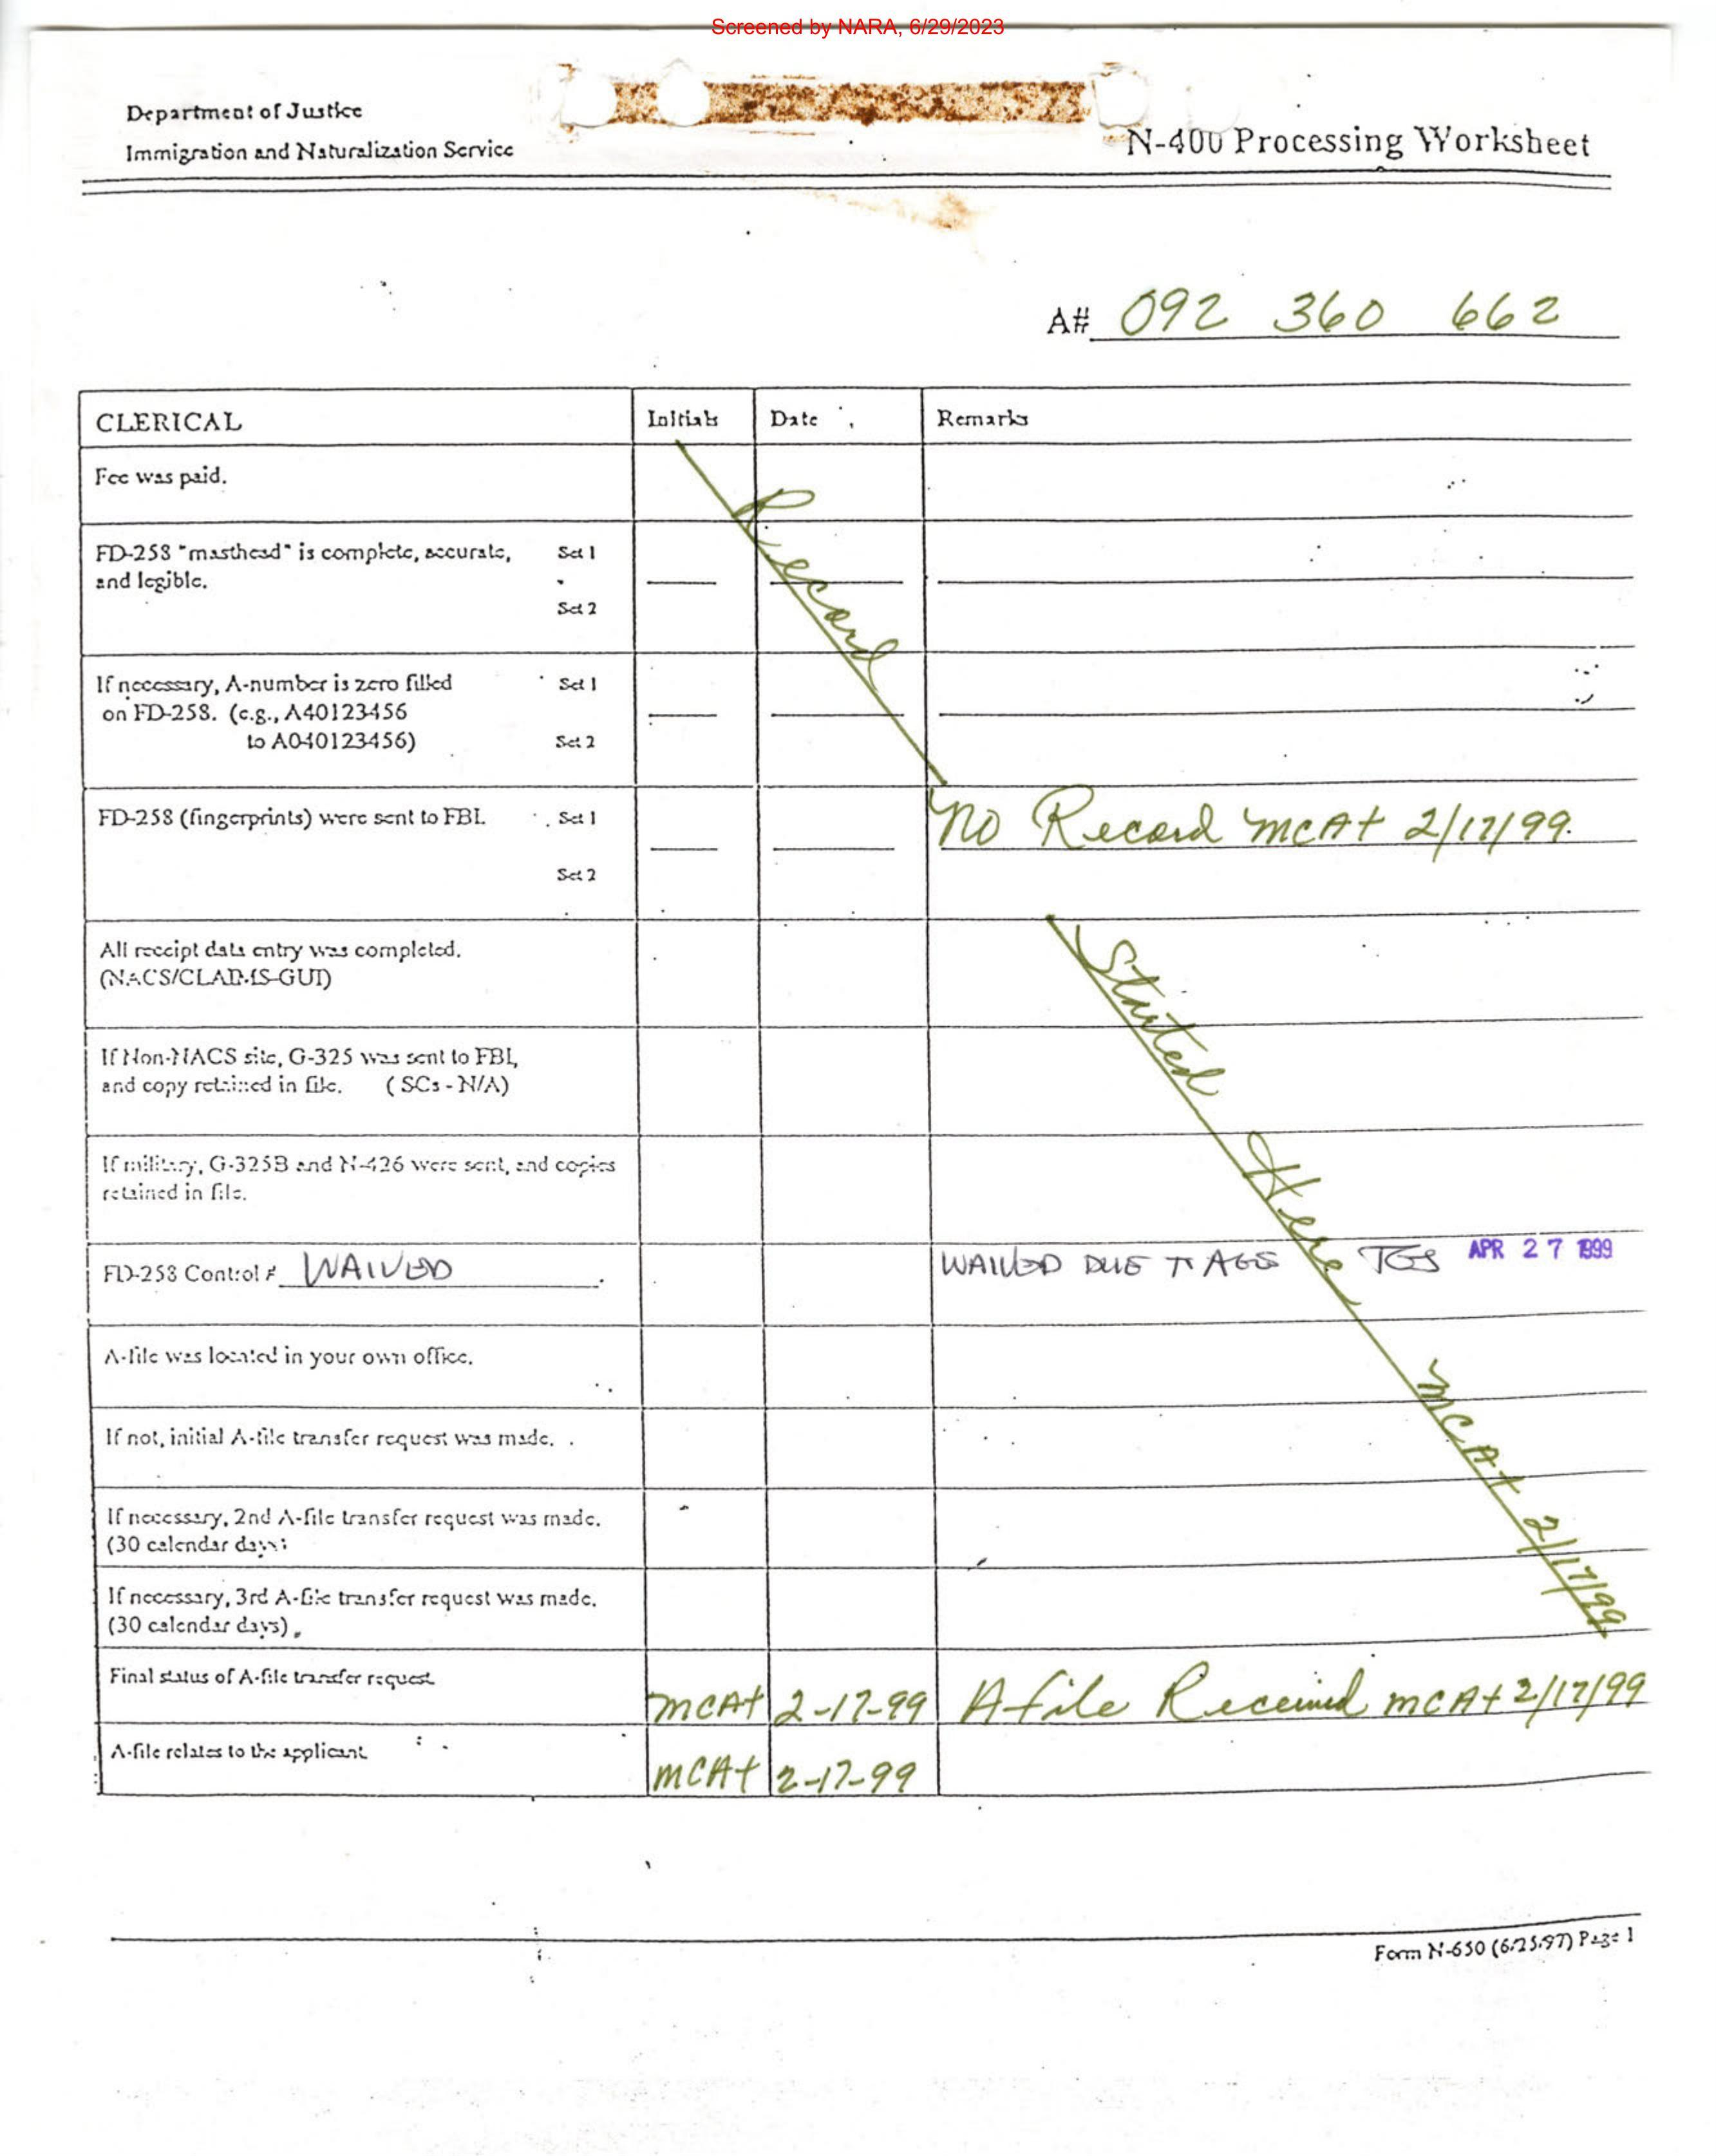 Screened by NARA, 6/29/2023
Department of Justice
Immigration and Naturalization Service
N-400 Processing Worksheet
A# 092 360 662
CLERICAL Initials Date Remarks
Fee was paid.
Record
FD-258 "masthead" is complete, accurate, Set 1
and legible.
Set 2
If necessary, A-number is zero filled Set 1
on FD-258. (e.g., A40123456
to A040123456) Set 2
FD-258 (fingerprints) were sent to FBI. Set 1
No Record MCAt 2/17/99
Set 2
All receipt data entry was completed.
(NACS/CLAIMS-GUI)
Started Here MCAt 2/17/99
If Non-NACS site, G-325 was sent to FBI,
and copy retained in file. (SCs - N/A)
If military, G-325B and N-426 were sent, and copies
retained in file.
FD-258 Control # WAIVED WAIVED DUE TO AGE TGS APR 27 1999
A-file was located in your own office.
If not, initial A-file transfer request was made.
If necessary, 2nd A-file transfer request was made.
(30 calendar days)
If necessary, 3rd A-file transfer request was made.
(30 calendar days)
Final status of A-file transfer request. MCAt 2-17-99 A-file Received MCAt 2/17/99
A-file relates to the applicant. MCAt 2-17-99
Form N-650 (6/25/97) Page 1